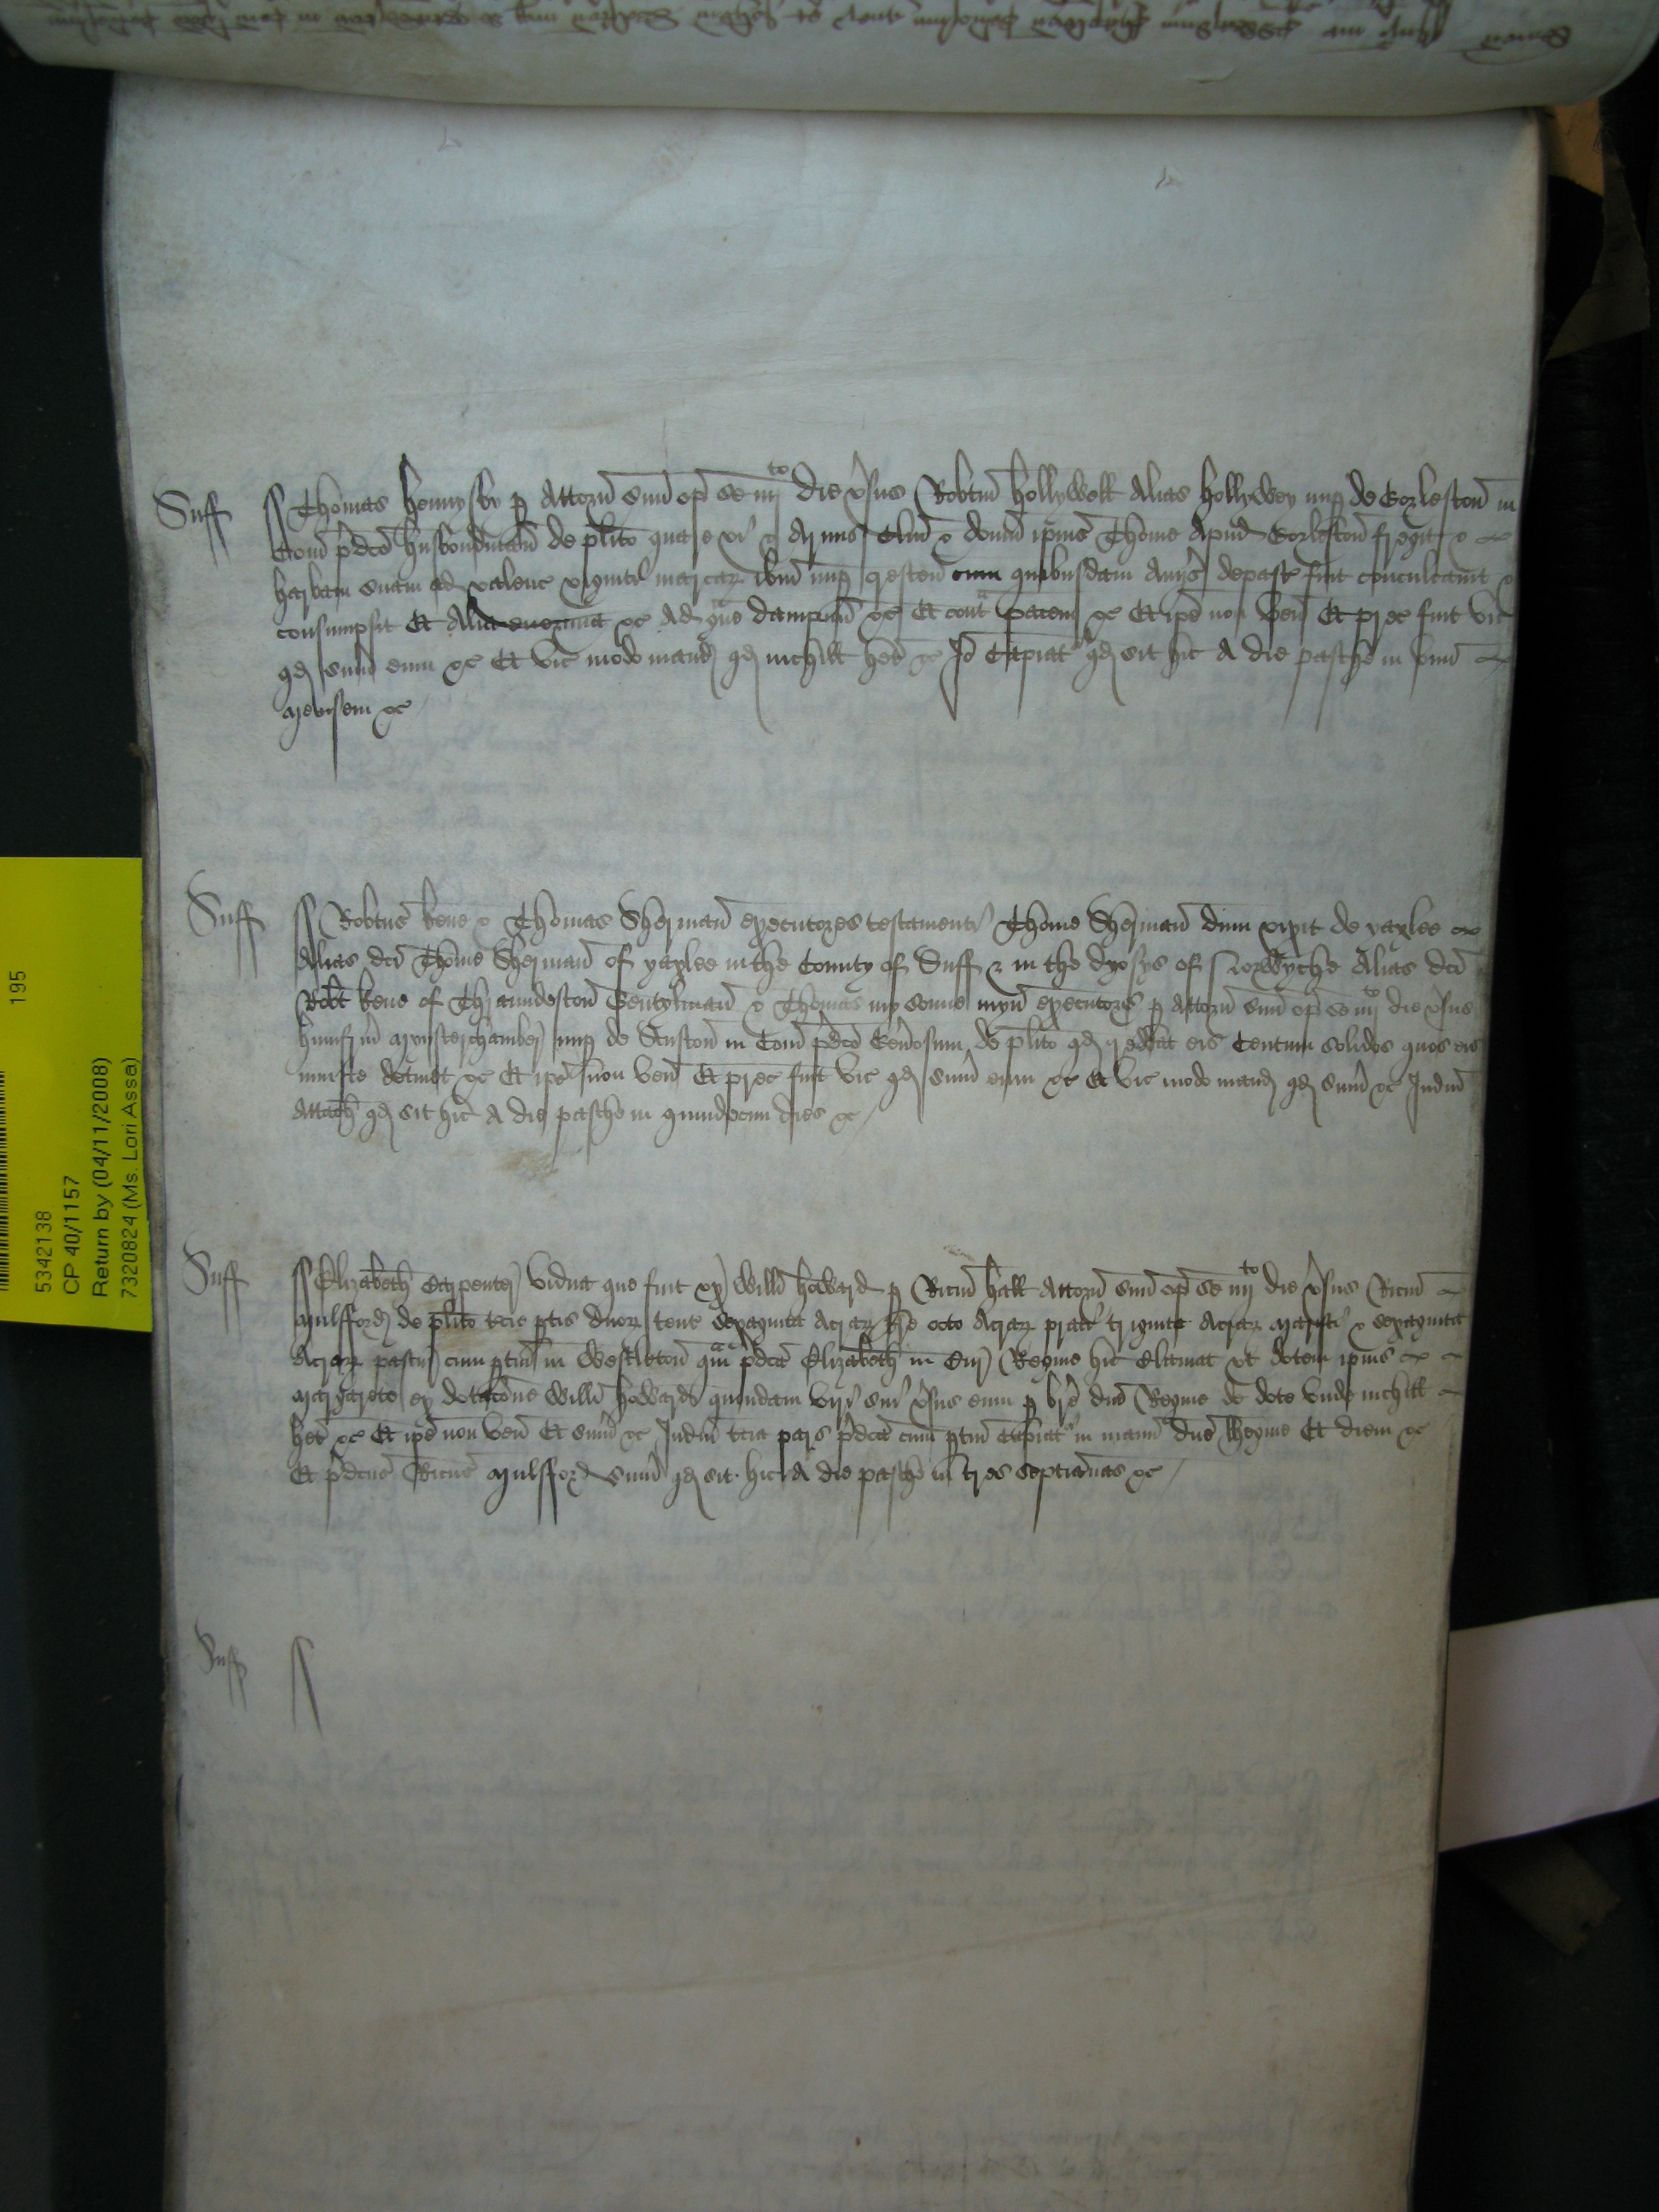 Suff Thomas hennysby p Attorñ suũ op̃ se iiij to die v̾sus Rob̃tum hollywell Alias hollywey nup de Gorlestoñ in
Com̃ p̃dc̃o husbondmañ de pl̃ito quare vi & Armis Cl̃m & domũ ip̃ius Thome Apud Gorlestoñ fregit &
herbam suam ad valenc̃ viginti marcar̃ ib̃m nup cresceñ cum quibusdam Aueriis depast̃ fuit conculcauit &
consumpsit Et Alia enormia &c Ad g̃ue dampnũ &c Et cont̃ pacem &c Et ip̃e non veñ Et prec̃ fuit vic̃
qd sum̃ eum &c Et vic̃ modo mand̃ qd nichil het̃ &c Io Capiat̃ qd sit hic A die pasche in vnũ
mensem &c
Suff Rob̃tus kene & Thomas Sherman̄ executores testamenti Thome Sherman̄ dum vixit de yaxlee
Alias dc̃i Thome Sherman̄ of yaxlee in the County of Suff & in the dyosys of Norwyche Alias dc̃i
Rob̃t kene of Thranndeston̄ Gentylman̄ & Thomas my sonne myn̄ executors p Attorñ suũ op̃ se iiij to die v̾sus
humfrm̃ mynsterchamber nup de Stuston̄ in Com̃ p̃dc̃o Gen̾osum de pl̃ito qd reddat eis Centum solidos quos eis
iniuste detinet &c Et ip̃e non veñ Et prec̃ fuit vic̃ qd sum̃ eum &c Et vic̃ modo mand̃ qd sum̃ &c Iudm̃
Attach̃ qd sit hic A die pasche in quindecim dies &c
Suff Elizabeth Carpenter vidua que fuit vx̃ Willm̃i howard p Ricm̃ hall Attorñ suũ op̃ se iiij to die v̾sus Ricm̃
mulfford de pl̃ito tc̃ie p̃tis duor̃ teñt sexaginta Acrar̃ tr̃e octo Acrar̃ prati triginta Acrar̃ marisci & sexaginta
Acrar̃ pasture cum p̃tiñ in Westleton̄ qm̃ p̃dc̃a Elizabeth in Cur̃ Regine hic Clamat vt dotem ip̃ius
margarete ex dotac̃one Willm̃i howard quondam viri sui v̾sus eum p br̃e dñe Regine de dote vnde nichil
het̃ &c Et ip̃e non veñ Et sum̃ &c Iudm̃ tc̃ia pars p̃dc̃a cum p̃tiñ Capiat̃ in manũ dñe Regine Et diem &c
Et p̃dc̃us Ricũs mulfford sum̃ qd sit hic A die pasche in tres septianas &c
Suff
195
5342138
CP 40/1157
Return by (04/11/2008)
7320824 (Ms. Lori Assa)